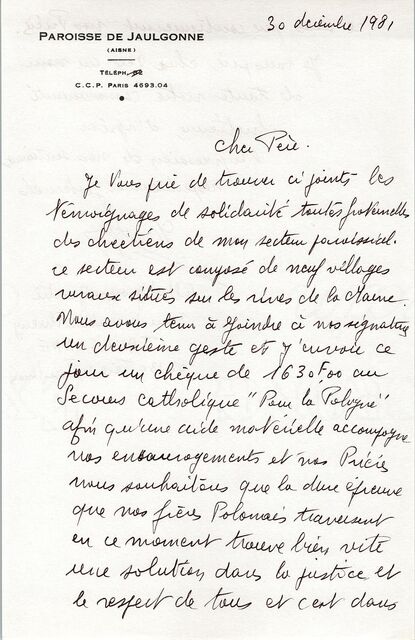 30 décembre 1981
PAROISSE DE JAULGONNE
(AISNE)
TÉLÉPH. 02
C.C.P. PARIS 4693.04
Cher Père.
Je vous prie de trouver ci joints les
témoignages de solidarité toutes fraternelles
des chrétiens de mon secteur paroissial.
ce secteur est composé de neuf villages
ruraux situés sur les rives de la Marne.
Nous avons tenu à joindre à nos signatures
un deuxième geste et j'envoie ce
jour un chèque de 1630F00 au
Secours catholique "Pour la Pologne"
afin qu'une aide matérielle accompagne
nos encouragements et nos Prières
nous souhaitons que la dure épreuve
que nos frères Polonais traversent
en ce moment trouve bien vite
une solution dans la justice et
le respect de tous et c'est dans